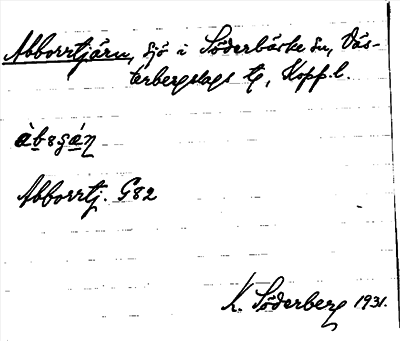 Abborrtjärn, sjö i Söderbärke sn, Väs-
terbergslags tg, Kopp.l.
Abborrtj. G82
K. Söderberg 1931.